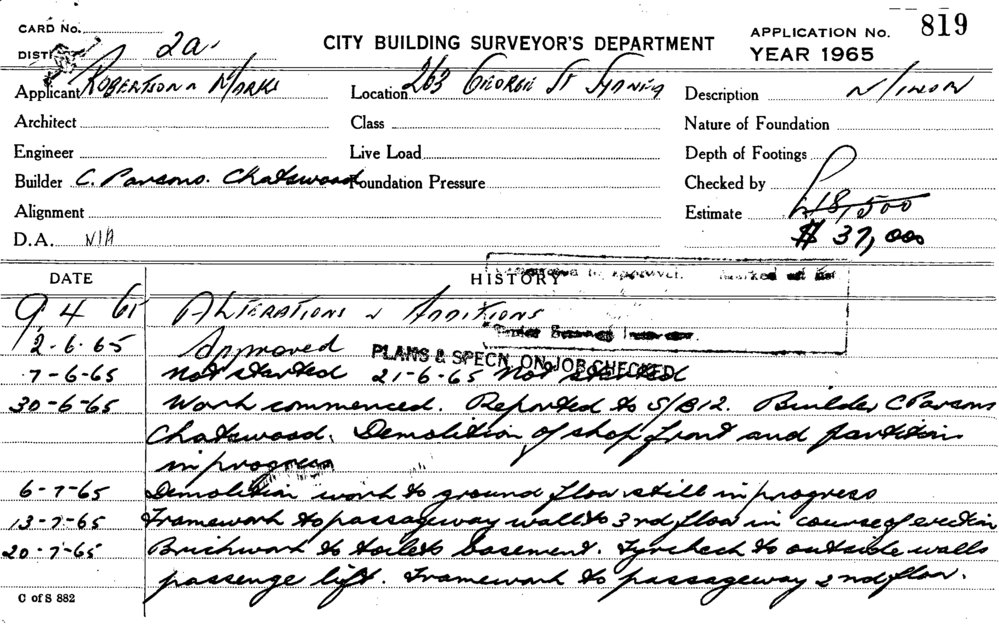 CARD No. 819
DIST. 2a. CITY BUILDING SURVEYOR'S DEPARTMENT APPLICATION No.
YEAR 1965
Applicant ROBERTSON & MARKS Location 263 GEORGE ST SYDNEY Description
Architect Class Nature of Foundation
Engineer Live Load Depth of Footings
Builder C. Parsons. Chatswood Foundation Pressure Checked by
Alignment Estimate £18,500
D.A. N/A $ 37,000
DATE HISTORY
9 4 65 ALTERATIONS & ADDITIONS
2-6-65 Approved PLANS & SPECN. ON JOB CHECKED
7-6-65 Not started 21-6-65 Not started
30-6-65 Work commenced. Reported to S/B12. Builder C Parsons
Chatswood. Demolition of shop front and partition
in progress
6-7-65 Demolition work to ground floor still in progress
13-7-65 Framework to passageway walls to 3rd floor in course of erection
20-7-65 Brickwork to toilets basement. Gyrocheck to outside walls
passenge lift. Framework to passageway 2nd floor.
C of S 882